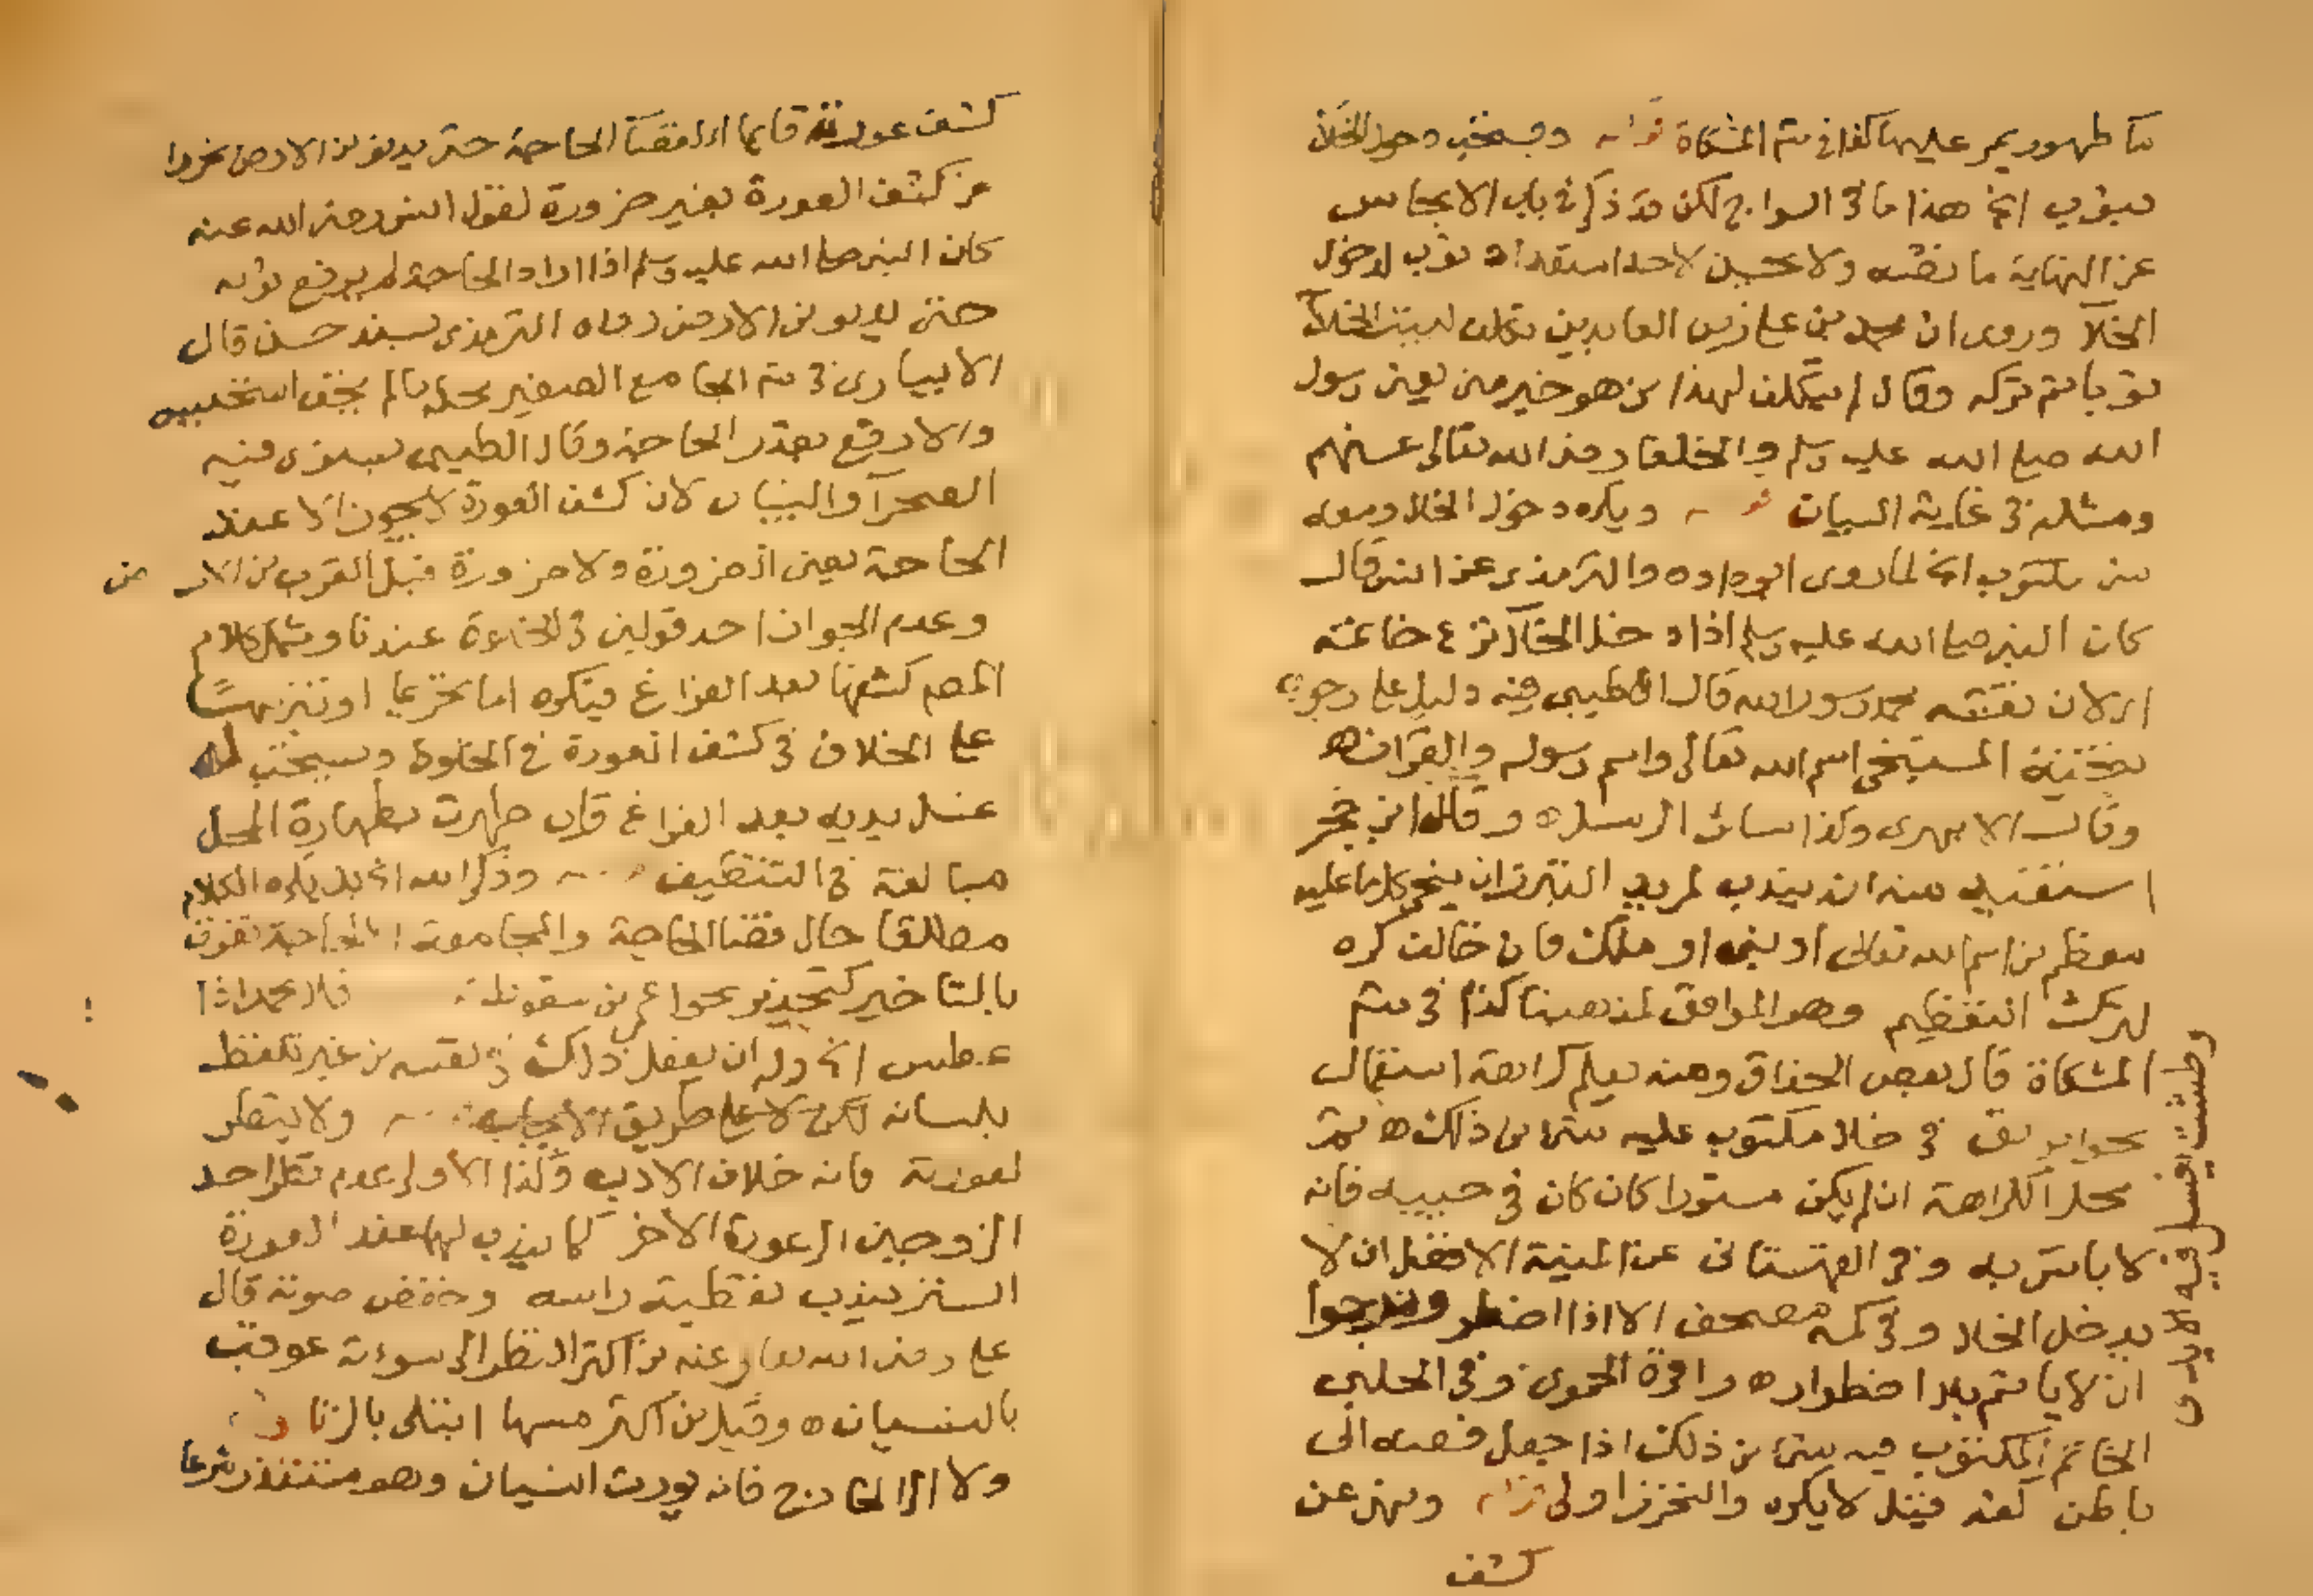 ما طهور يمر عليها كذا في شرح المشكاة قوله ويستحب دخول الخلا
بثوب الخ هذا ما في السراج لكن قد ذكر في باب الانجاس
عن النهاية ما نصه ولا يحسن لاحد استعداد ثوب لدخول
الخلآ وروى ان محمد بن علي زين العابدين تكلف لبيت الخلآ
ثوبا ثم تركه وقال لم يتكلف لهذا من هو خير مني يعني رسول
الله صلى الله عليه وسلم والخلفا رضى الله تعالى عنهم
ومثله في غاية البيان ويكره دخول الخلا ومعه
شئ مكتوب الخ لما روى ابو داود والترمذي عن انس قال
كان النبي صلى الله عليه وسلم اذا دخل الخلآ نزع خاتمه
اى لان نقشه محمد رسول الله قال الطيبي فيه دليل على وجوب
تنحية المستنجي اسم الله تعالى واسم رسوله والقرآن ه
وقال الابهري وكذا سائر الرسل ه وقال ابن حجر
استفيد منه انه يندب لمريد التبرز ان ينحي كل ما عليه
معظم من اسم الله تعالى او نبي او ملك فان خالف كره
لترك التعظيم وهو الموافق لمذهبنا كذا في شرح
المشكاة قال بعض الحذاق ومنه يعلم كراهة استعمال
نحو ابريق في خلا مكتوب عليه شئ من ذلك ه ثم
محل الكراهة ان لم يكن مستورا كان كان في جيبه فانه
لا باس به وفي القهستاني عن المنية الافضل ان لا
يدخل الخلا وفي كمه مصحف الا اذا اضطر ونرجوا
ان لا ياثم بلا اضطرار ه واقره الحموي وفي الحلبي
الخاتم المكتوب فيه شئ من ذلك اذا جعل فصه الى
باطن كفه قيل لا يكره والتحرز اولى قوله ونهى عن
كشف
وطشت يغسل فيه الايدى
كشف عورته قايما اى لقضآ الحاجة حتى يدنو من الارض تحرزا
عن كشف العورة بغير ضرورة لقول انس رضى الله عنه
كان النبي صلى الله عليه وسلم اذا اراد الحاجة لم يرفع ثوبه
حتى يدنو من الارض رواه الترمذي بسند حسن قال
الابياري في شرح الجامع الصغير محله ما لم يخف تنجيسه
والا رفع بقدر الحاجة وقال الطيبي يستوى فيه
الصحرآ والبنيان لان كشف العورة لا يجوز الا عند
الحاجة يعني الضرورة ولا ضرورة قبل القرب من الارض
وعدم الجواز احد قولين في الخلوة عندنا وشمل كلام
المص كشفها بعد الفراغ فيكره اما تحريما او تنزيها
على الخلاف في كشف العورة في الخلوة ويستحب له
غسل يديه بعد الفراغ وان طهرت بطهارة المحل
مبالغة في التنظيف وذكر الله الخ بل يكره الكلام
مطلقا حال قضا الحاجة والمجامعة الا لحاجة تفوت
بالتاخير كتحذير نحو اعمى من سقوط فلا يحمد اذا
عطس الخ وله ان يفعل ذلك في نفسه من غير تلفظ
بلسانه لكن لا على طريق الاجابة ولا ينظر
لعورته فانه خلاف الادب وكذا الاولى عدم نظر احد
الزوجين الى عورة الاخر كما يندب لهما عند العورة
الستر يندب تغطية راسه وخفض صوته قال
علي رضى الله تعالى عنه من اكثر النظر الى سوءته عوقب
بالنسيان ه وقيل من اكثر مسها ابتلى بالزنا
ولا الى الخارج فانه يورث النسيان وهو مستقذر شرعا